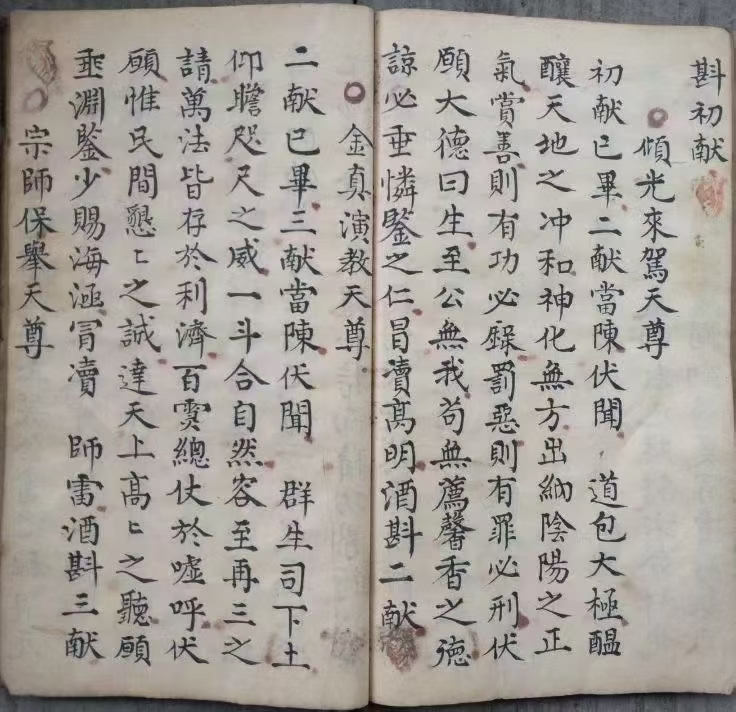 斟初献
傾光來駕天尊
初献已畢二献當陳伏聞 道包大極醖
釀天地之冲和神化無方出納陰陽之正
氣賞善則有功必録罰惡則有罪必刑伏
願大德曰生至公無我苟無薦馨香之德
諒必垂憐鑒之仁冒瀆高明酒斟二献
金真演教天尊
二献已畢三献當陳伏聞 群生司下土
仰瞻咫尺之威一斗合自然容至再三之
請萬法皆存於利濟百霊總仗於嘘呼伏
願惟民間懇〻之誠達天上高〻之聽願
垂淵鑒少賜海涵冒瀆 師雷酒斟三献
宗師保舉天尊